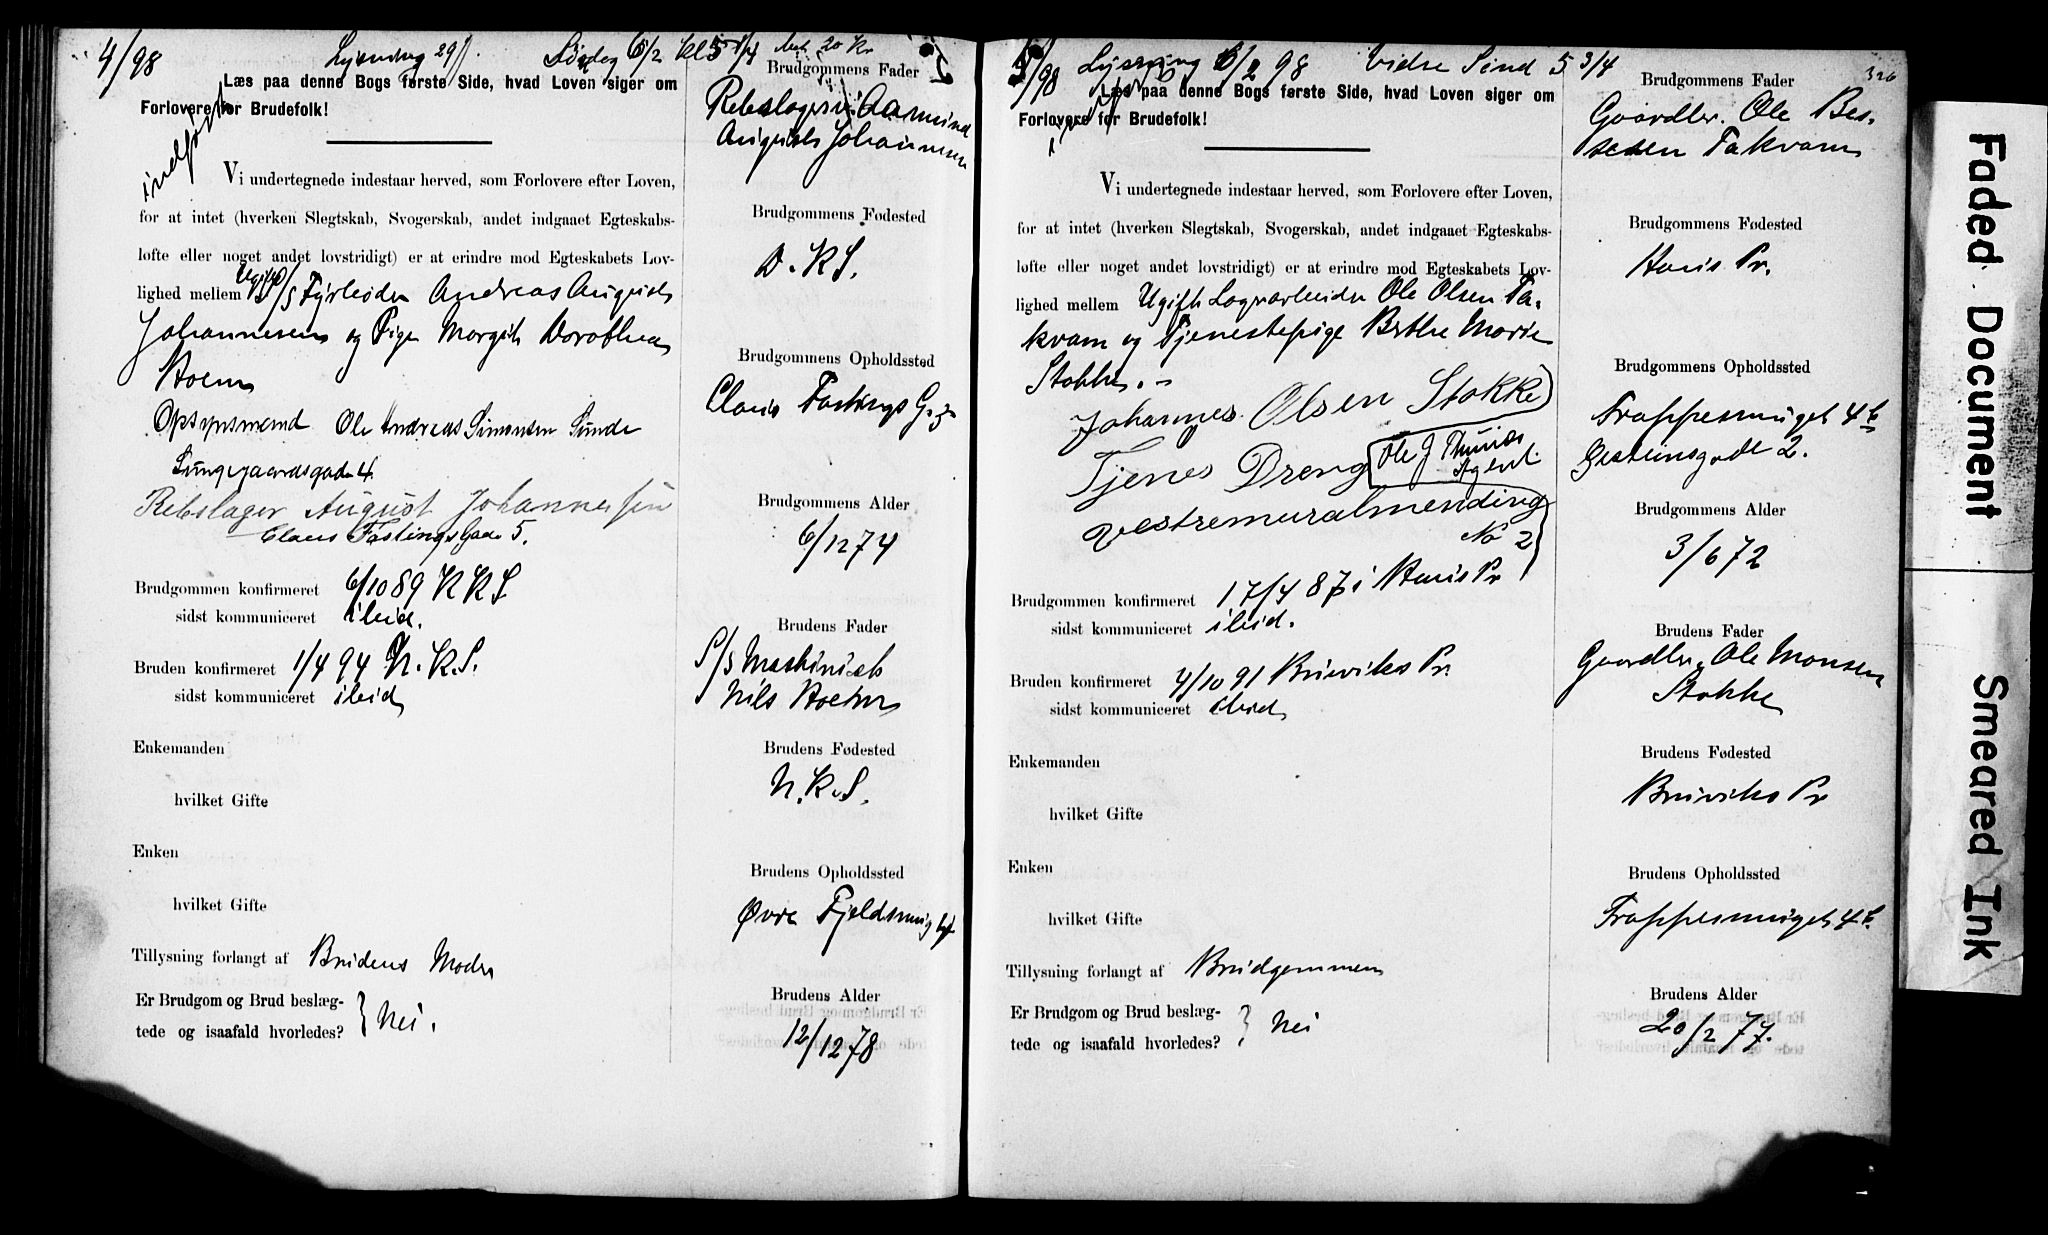 4/98
Søndag 6/2 Kl 5 1/4
20 Kr
Læs paa denne Bogs første Side, hvad Loven siger om
Forlovere for Brudefolk!
indført
Vi undertegnede indestaar herved, som Forlovere efter Loven,
for at intet (hverken Slegtskab, Svogerskab, andet indgaaet Egteskabs-
løfte eller noget andet lovstridigt) er at erindre mod Egteskabets Lov-
lighed mellem Ugift S/S Fyrbøder Andreas August
Johannesen og Pige Margit Dorothea
Holm
Opsynsmend Ole Andreas Simonsen Sunde
Lungegaardsgaden 4
Rebslager August Johannessen
Claus Fastings Gade 5.
Brudgommen konfirmeret 6/10 89 K K S
sidst kommuniceret ileid.
Bruden konfirmeret 1/4 94 N. K. S.
sidst kommuniceret ileid
Enkemanden
hvilket Gifte
Enken
hvilket Gifte
Tillysning forlangt af Brudens Moder
Er Brudgom og Brud beslæg-
tede og isaafald hvorledes? } Nei.
Brudgommens Fader
Rebslagersv. Aamund
August Johannesen
Brudgommens Fødested
D. K S.
Brudgommens Opholdssted
Claus Fastings G.
Brudgommens Alder
6/12 74
Brudens Fader
S/S Maskinist
Nils Holm
Brudens Fødested
N. K. S.
Brudens Opholdssted
Øvre Fjeldsmug
Brudens Alder
12/12 78
5/98
Lysning 6/2 98
5 3/4
326
Læs paa denne Bogs første Side, hvad Loven siger om
Forlovere for Brudefolk!
Vi undertegnede indestaar herved, som Forlovere efter Loven,
for at intet (hverken Slegtskab, Svogerskab, andet indgaaet Egteskabs-
løfte eller noget andet lovstridigt) er at erindre mod Egteskabets Lov-
lighed mellem Ugift Lagerarbeider Ole Olsen Ta-
kvam og Tjenestepige Brithe Marie
Stokke.-
Johannes Olsen Stokke
Tjenes Dreng
Ole J Thunæs
Agent
Vestremuralmending
No 2
Brudgommen konfirmeret 17/4 87 i Haus Pr
sidst kommuniceret ileid.
Bruden konfirmeret 4/10 91 Bruviks Pr.
sidst kommuniceret ileid
Enkemanden
hvilket Gifte
Enken
hvilket Gifte
Tillysning forlangt af Brudgommen
Er Brudgom og Brud beslæg-
tede og isaafald hvorledes? } Nei
Brudgommens Fader
Gaardbr. Ole Bes-
sesen Takvam
Brudgommens Fødested
Haus Pr.
Brudgommens Opholdssted
Trappesmuget 4b
Gestensgade 2.
Brudgommens Alder
3/6 72
Brudens Fader
Gaardbr. Ole Monsen
Stokke
Brudens Fødested
Bruviks Pr
Brudens Opholdssted
Trappesmuget 4b.
Brudens Alder
20/2 77.
Faded Document
Smeared Ink